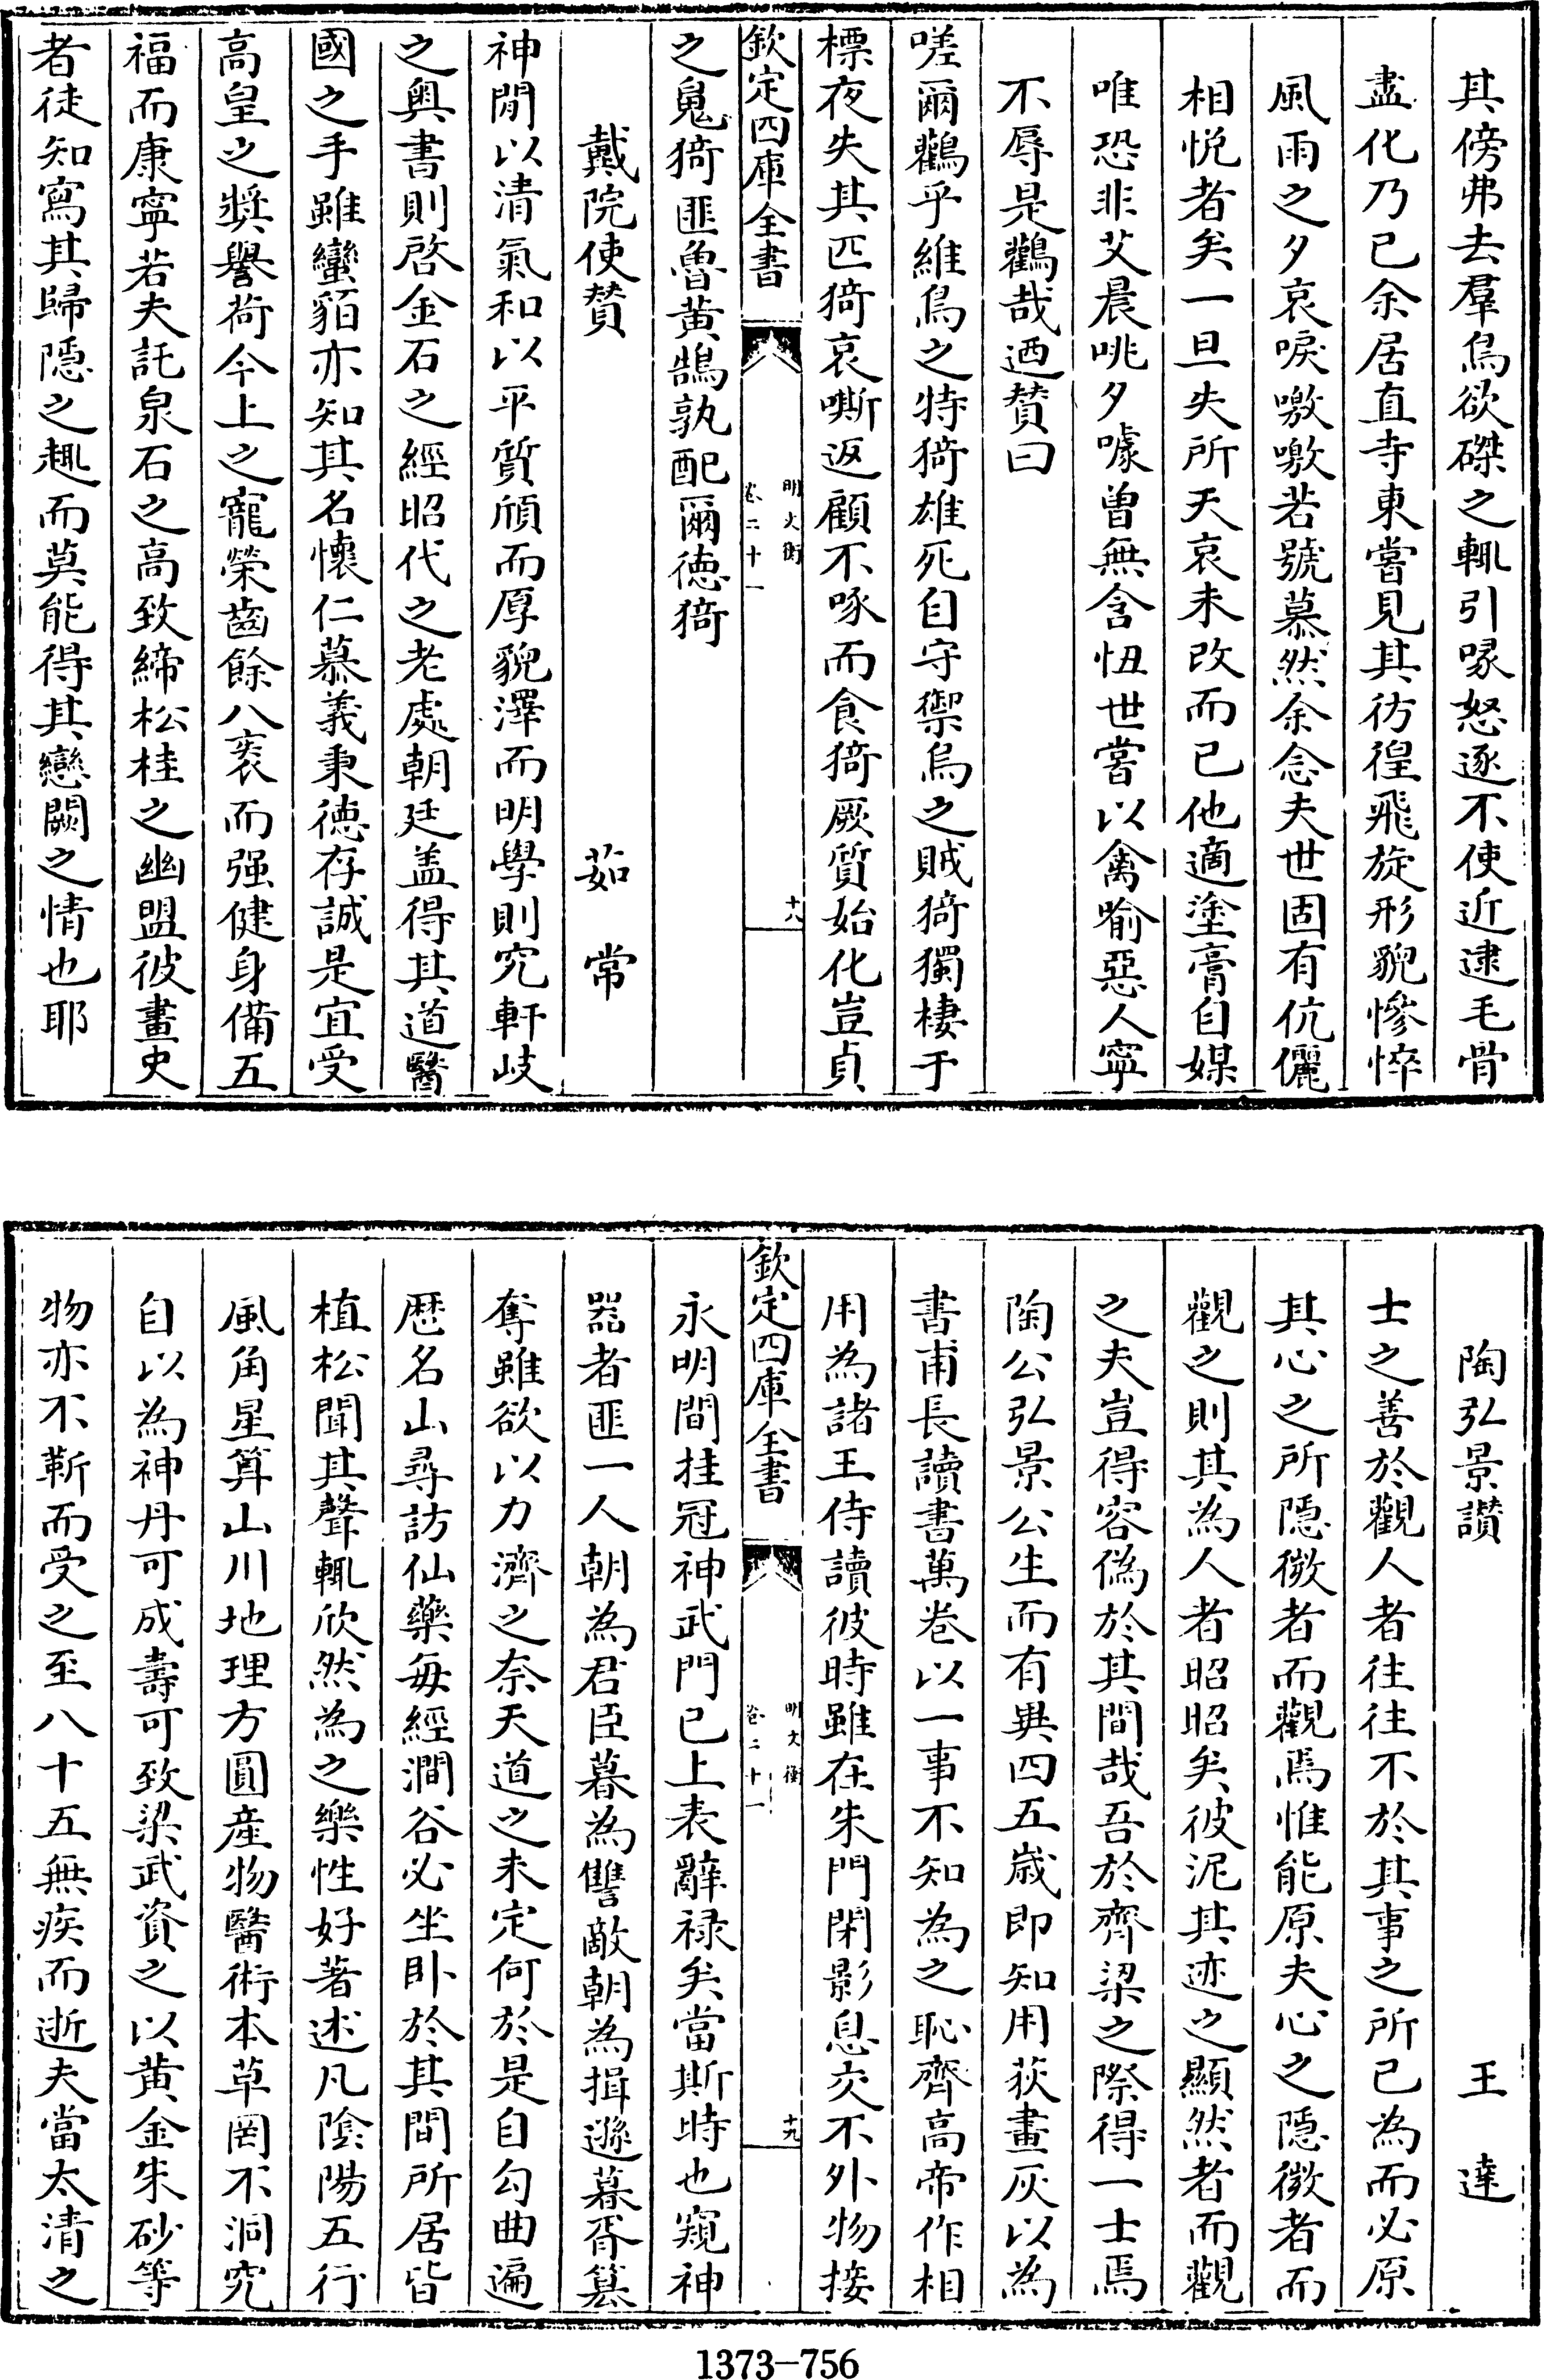 其傍弗去羣鳥欲磔之輒引喙怒逐不使近逮毛骨
盡化乃已余居直寺東嘗見其彷徨飛旋形貌慘悴
風雨之夕哀唳嗷嗷若號慕然余念夫世固有伉儷
相悦者矣一旦失所天哀未改而已他適塗膏自媒
唯恐非艾晨咷夕噱曽無含忸世嘗以禽喻惡人寜
不辱是鸛哉迺贊曰
嗟爾鸛乎維鳥之特猗雄死自守禦烏之賊猗獨棲于
標夜失其匹猗哀嘶返顧不啄而食猗厥質始化豈貞
欽定四庫全書
明文衡
卷二十一
十八
之䰟猗匪魯黄鵠孰配爾徳猗
戴院使贊
茹常
神閒以清氣和以平質頎而厚貌澤而明學則究軒岐
之奥書則啓金石之經昭代之老處朝廷盖得其道醫
國之手雖蠻貊亦知其名懷仁慕義秉徳存誠是宜受
高皇之奬譽荷今上之寵榮齒餘八袠而强健身備五
福而康寧若夫託泉石之高致締松桂之幽盟彼畫史
者徒知寫其歸隠之趣而莫能得其戀闕之情也耶
陶弘景讃
王達
士之善於觀人者往往不於其事之所已為而必原
其心之所隠微者而觀焉惟能原夫心之隠微者而
觀之則其為人者昭昭矣彼泥其迹之顯然者而觀
之夫豈得容偽於其間哉吾於齊梁之際得一士焉
陶公弘景公生而有異四五嵗即知用荻畫灰以為
書甫長讀書萬卷以一事不知為之恥齊高帝作相
用為諸王侍讀彼時雖在朱門閉影息交不外物接
欽定四庫全書
明文衡
卷二十一
十九
永明間挂冠神武門已上表辭禄矣當斯時也窺神
器者匪一人朝為君臣暮為讐敵朝為揖遜暮胥簒
奪雖欲以力濟之奈天道之未定何於是自勾曲遍
歴名山尋訪仙藥毎經澗谷必坐卧於其間所居皆
植松聞其聲輒欣然為之樂性好著述凡陰陽五行
風角星算山川地理方圓産物醫術本草罔不洞究
自以為神丹可成壽可致梁武資之以黄金朱砂等
物亦不靳而受之至八十五無疾而逝夫當太清之
1373-756